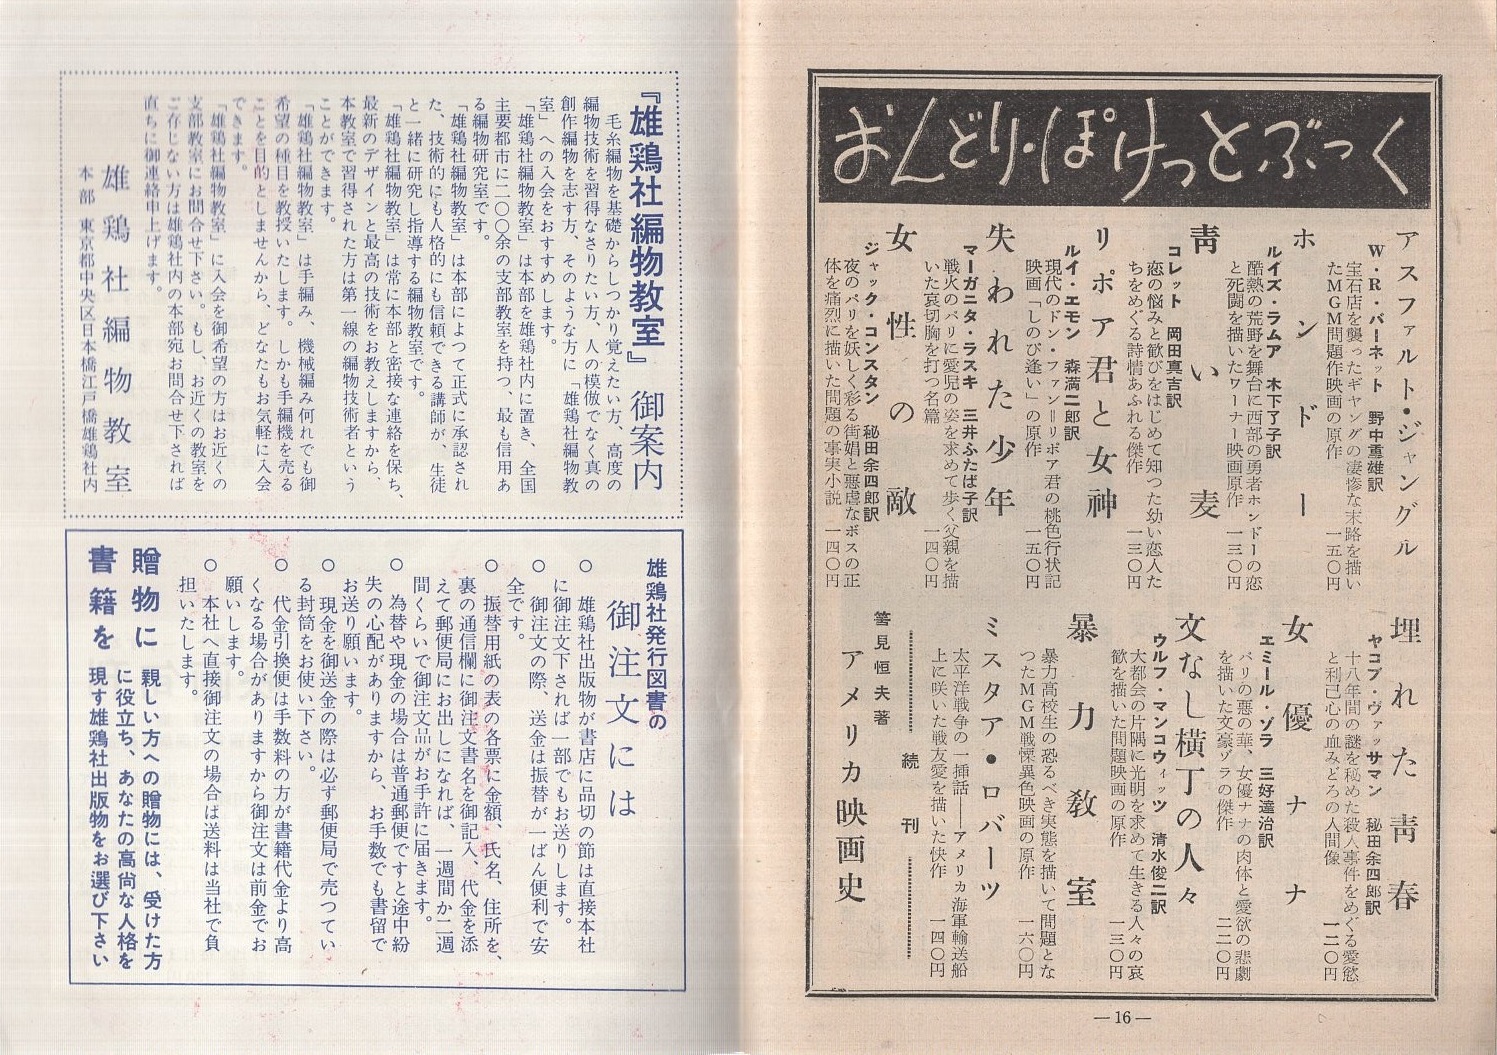 おんどり・ぽけっとぶっく
アスファルト・ジャングル
W・R・バーネット 野中重雄訳
宝石店を襲ったギャングの凄惨な末路を描い
たMGM問題作映画の原作 一五〇円
ホンドー
ルイズ・ラムア 木下了子訳
酷熱の荒野を舞台に西部の勇者ホンドーの恋
と死闘を描いたワーナー映画原作 一三〇円
青い麦
コレット 岡田真吉訳
恋の悩みと歓びをはじめて知つた幼い恋人た
ちをめぐる詩情あふれる傑作 一三〇円
リポア君と女神
ルイ・エモン 森満二郎訳
現代のドン・ファン=リポア君の桃色行状記
映画「しのび逢い」の原作 一五〇円
失われた少年
マーガニタ・ラスキ 三井ふたば子訳
戦火のパリに愛児の姿を求めて歩く父親を描
いた哀切胸を打つ名篇 一四〇円
女性の敵
ジャック・コンスタン 秘田余四郎訳
夜のパリを妖しく彩る街娼と悪虐なボスの正
体を痛烈に描いた問題の事実小説 一四〇円
埋れた青春
ヤコブ・ヴァッサマン 秘田余四郎訳
十八年間の謎を秘めた殺人事件をめぐる愛慾
と利己心の血みどろの人間像 一二〇円
女優ナナ
エミール・ゾラ 三好達治訳
パリの悪の華、女優ナナの肉体と愛欲の悲劇
を描いた文豪ゾラの傑作 二二〇円
文なし横丁の人々
ウルフ・マンコウィッツ 清水俊二訳
大都会の片隅に光明を求めて生きる人々の哀
歓を描いた問題映画の原作 一三〇円
暴力教室
暴力高校生の恐るべき実態を描いて問題とな
つたMGM戦慄異色映画の原作 一六〇円
ミスタア・ロバーツ
太平洋戦争の一挿話――アメリカ海軍輸送船
上に咲いた戦友愛を描いた快作 一四〇円
続刊
筈見恒夫著
アメリカ映画史
―16―
『雄鶏社編物教室』御案内
毛糸編物を基礎からしつかり覚えたい方、高度の
編物技術を習得なさりたい方、人の模倣でなく真の
創作編物を志す方、そのような方に「雄鶏社編物教
室」への入会をおすすめします。
「雄鶏社編物教室」は本部を雄鶏社内に置き、全国
主要都市に二〇〇余の支部教室を持つ、最も信用あ
る編物研究室です。
「雄鶏社編物教室」は本部によつて正式に承認され
た、技術的にも人格的にも信頼できる講師が、生徒
と一緒に研究し指導する編物教室です。
「雄鶏社編物教室」は常に本部と密接な連絡を保ち、
最新のデザインと最高の技術をお教えしますから、
本教室で習得された方は第一線の編物技術者という
ことができます。
「雄鶏社編物教室」は手編み、機械編み何れでも御
希望の種目を教授いたします。しかも手編機を売る
ことを目的としませんから、どなたもお気軽に入会
できます。
「雄鶏社編物教室」に入会を御希望の方はお近くの
支部教室にお問合せ下さい。もし、お近くの教室を
ご存じない方は雄鶏社内の本部宛お問合せ下されば
直ちに御連絡申上げます。
雄鶏社編物教室
本部 東京都中央区日本橋江戸橋雄鶏社内
雄鶏社発行図書の
御注文には
○ 雄鶏社出版物が書店に品切の節は直接本社
に御注文下されば一部でもお送りします。
○ 御注文の際、送金は振替が一ばん便利で安
全です。
○ 振替用紙の表の各票に金額、氏名、住所を、
裏の通信欄に御注文書名を御記入、代金を添
えて郵便局にお出しになれば、一週間か二週
間くらいで御注文品がお手許に届きます。
○ 為替や現金の場合は普通郵便ですと途中紛
失の心配がありますから、お手数でも書留で
お送り願います。
○ 現金を御送金の際は必ず郵便局で売つてい
る封筒をお使い下さい。
○ 代金引換便は手数料の方が書籍代金より高
くなる場合がありますから御注文は前金でお
願いします。
○ 本社へ直接御注文の場合は送料は当社で負
担いたします。
贈物に
書籍を
親しい方への贈物には、受けた方
に役立ち、あなたの高尚な人格を
現す雄鶏社出版物をお選び下さい